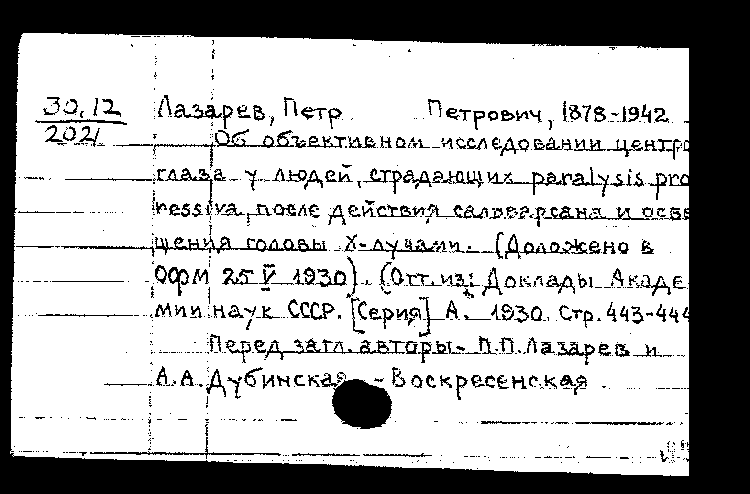 30.12
2021
Лазарев, Петр Петрович, 1878-1942
Об объективном исследовании центро
глаза у людей, страдающих paralysis pro
ressiva, после действия салварсана и осве
щения головы X-лучами. (Доложено в
ОФМ 25 V 1930). (Отт. из: Доклады Акаде
мии наук СССР. [Серия] А. 1930. Стр. 443-444
Перед загл. авторы - П.П. Лазарев и
А.А. Дубинская - Воскресенская